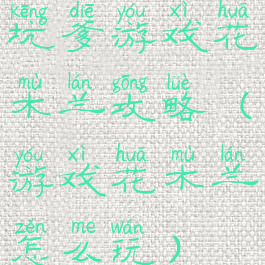 kēng diē yóu xì huā
坑爹游戏花
mù lán gōng lüè
木兰攻略（
yóu xì huā mù lán
游戏花木兰
zěn me wán
怎么玩）